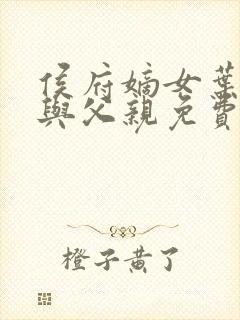 侯府嫡女葉
與父親免費
橙子黃了